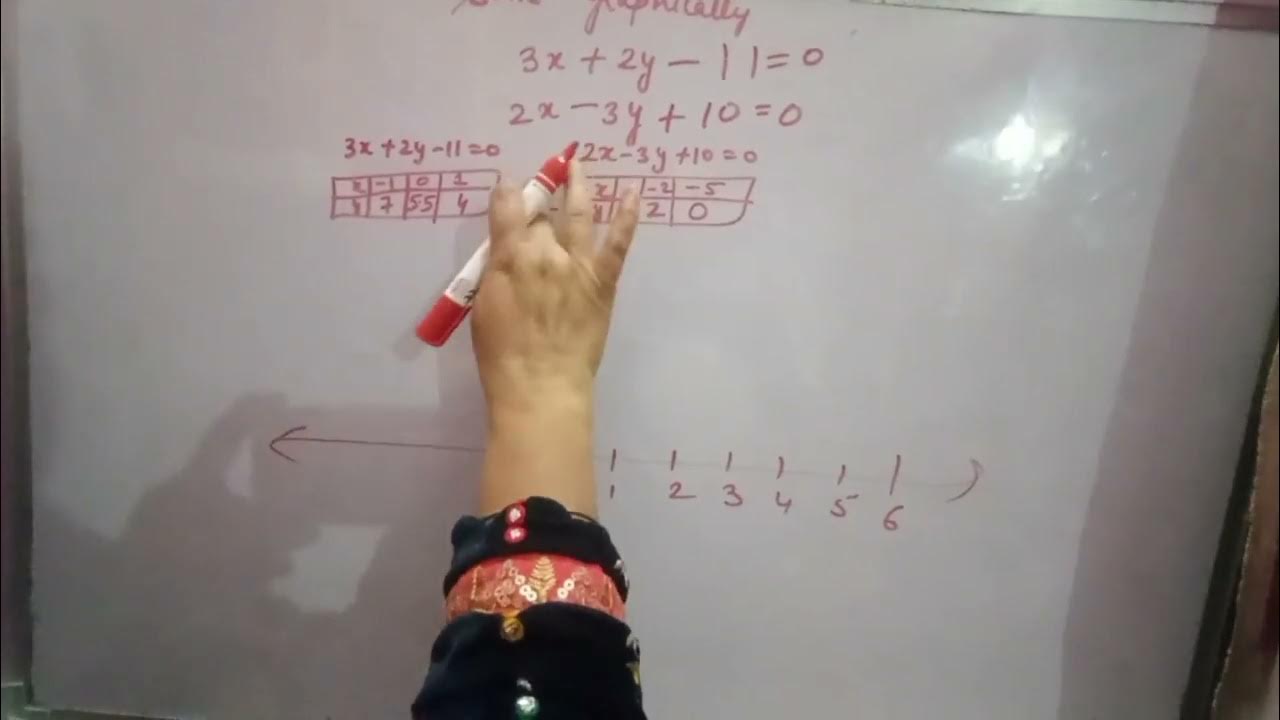 graphically
3x + 2y - 11 = 0
2x - 3y + 10 = 0
3x + 2y - 11 = 0
2x - 3y + 10 = 0
x -1 0 1
y 7 55 4
x -2 -5
y 2 0
1 2 3 4 5 6